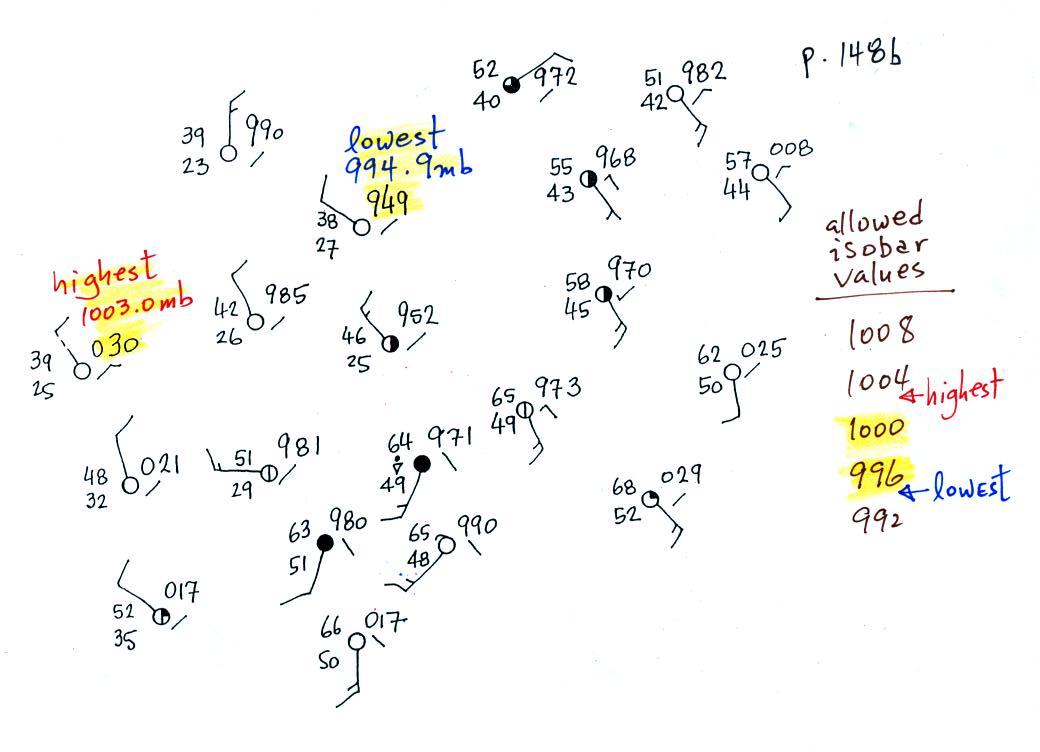 p. 148b
52
972
40
51 982
42
39 990
23
lowest
994.9mb
949
38
27
55 968
43
57 008
44
allowed
isobar
values
highest
1003.0mb
030
39
25
42 985
26
46 952
25
58 970
45
1008
62 025
50
1004 highest
65 973
49
1000
48 021
32
51 981
29
64 971
49
996
lowest
992
68 029
52
63 980
51
65 990
48
52 017
35
66 017
50